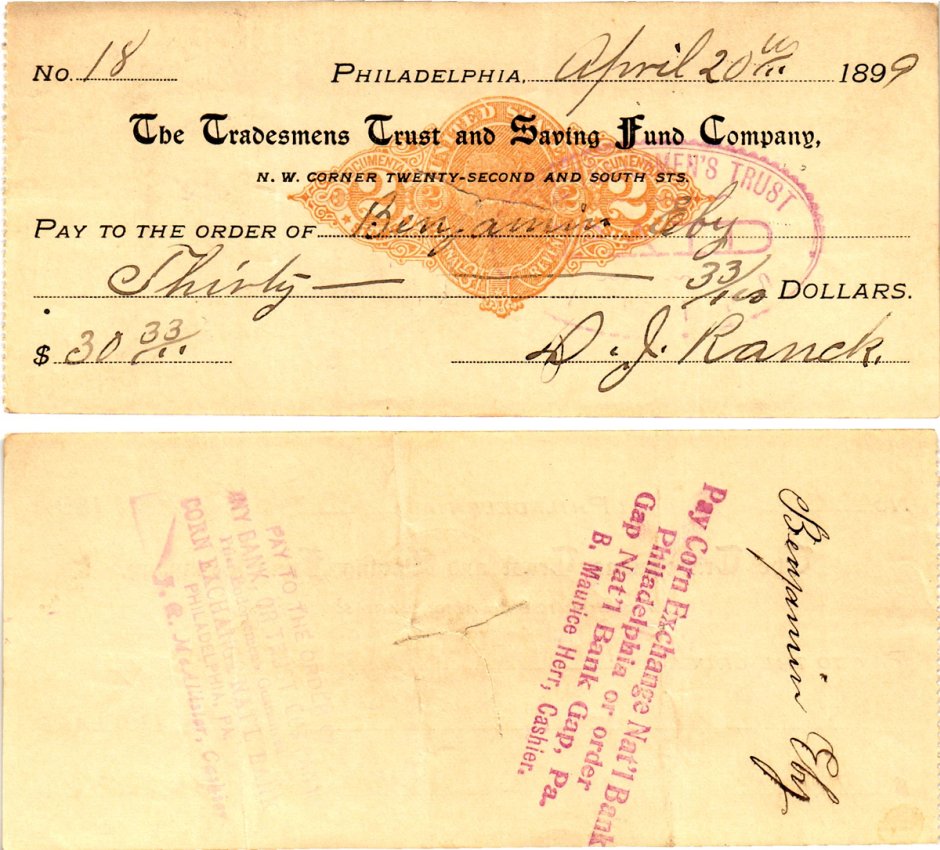 No. 18 Philadelphia, April 20th 1899
The Tradesmens Trust and Saving Fund Company,
N. W. CORNER TWENTY-SECOND AND SOUTH STS.
UNITED STATES
DOCUMENTARY DOCUMENTARY
2 2 2 2
INTERNAL REVENUE
MEN'S TRUST
PAID
PAY TO THE ORDER OF Benjamin Eby
Thirty 33/100 DOLLARS.
$ 30 33/
D. J. Ranck.
Benjamin Eby
Pay Corn Exchange Nat'l Bank
Philadelphia or order
Gap Nat'l Bank Gap, Pa.
B. Maurice Herr, Cashier.
PAY TO THE ORDER OF
ANY BANK OR
CORN EXCHANGE NAT'L
PHILADELPHIA, PA.
Cashier